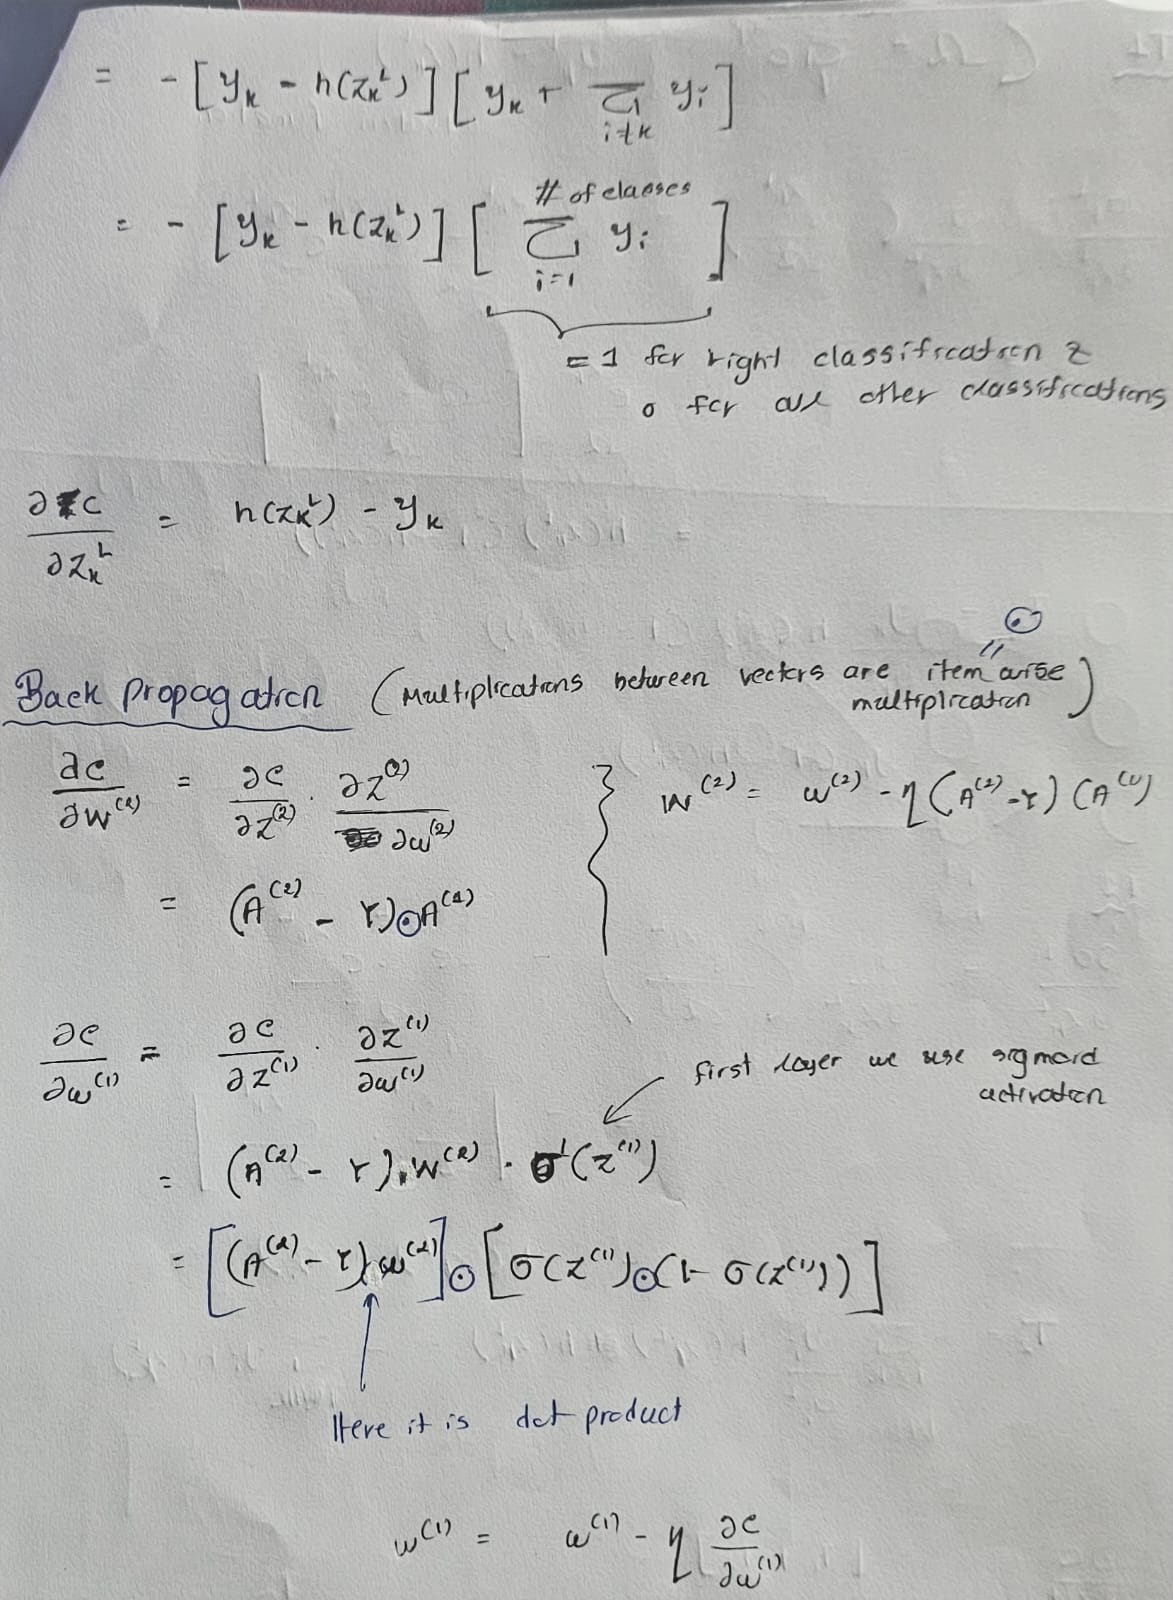 = - [y_k - h(z_k^L)] [y_k + Σ_{i≠k} y_i]
# of classes
= - [y_k - h(z_k^L)] [Σ_{i=1} y_i]
= 1 for right classification &
0 for all other classifications
∂C/∂z_k^L = h(z_k^L) - y_k
⊙
Back propagation (Multiplications between vectors are item wise multiplication)
∂C/∂W^(2) = ∂C/∂Z^(2) . ∂Z^(2)/∂W^(2) } W^(2) = W^(2) - η(A^(2) - Y)(A^(1))
= (A^(2) - Y)⊙A^(1)
∂C/∂W^(1) = ∂C/∂Z^(1) . ∂Z^(1)/∂W^(1)
first layer we use sigmoid
activation
= (A^(2) - Y).W^(2) . σ'(Z^(1))
= [(A^(2) - Y).W^(2)]⊙[σ(Z^(1))⊙(1 - σ(Z^(1)))]
Here it is dot product
W^(1) = W^(1) - η ∂C/∂W^(1)